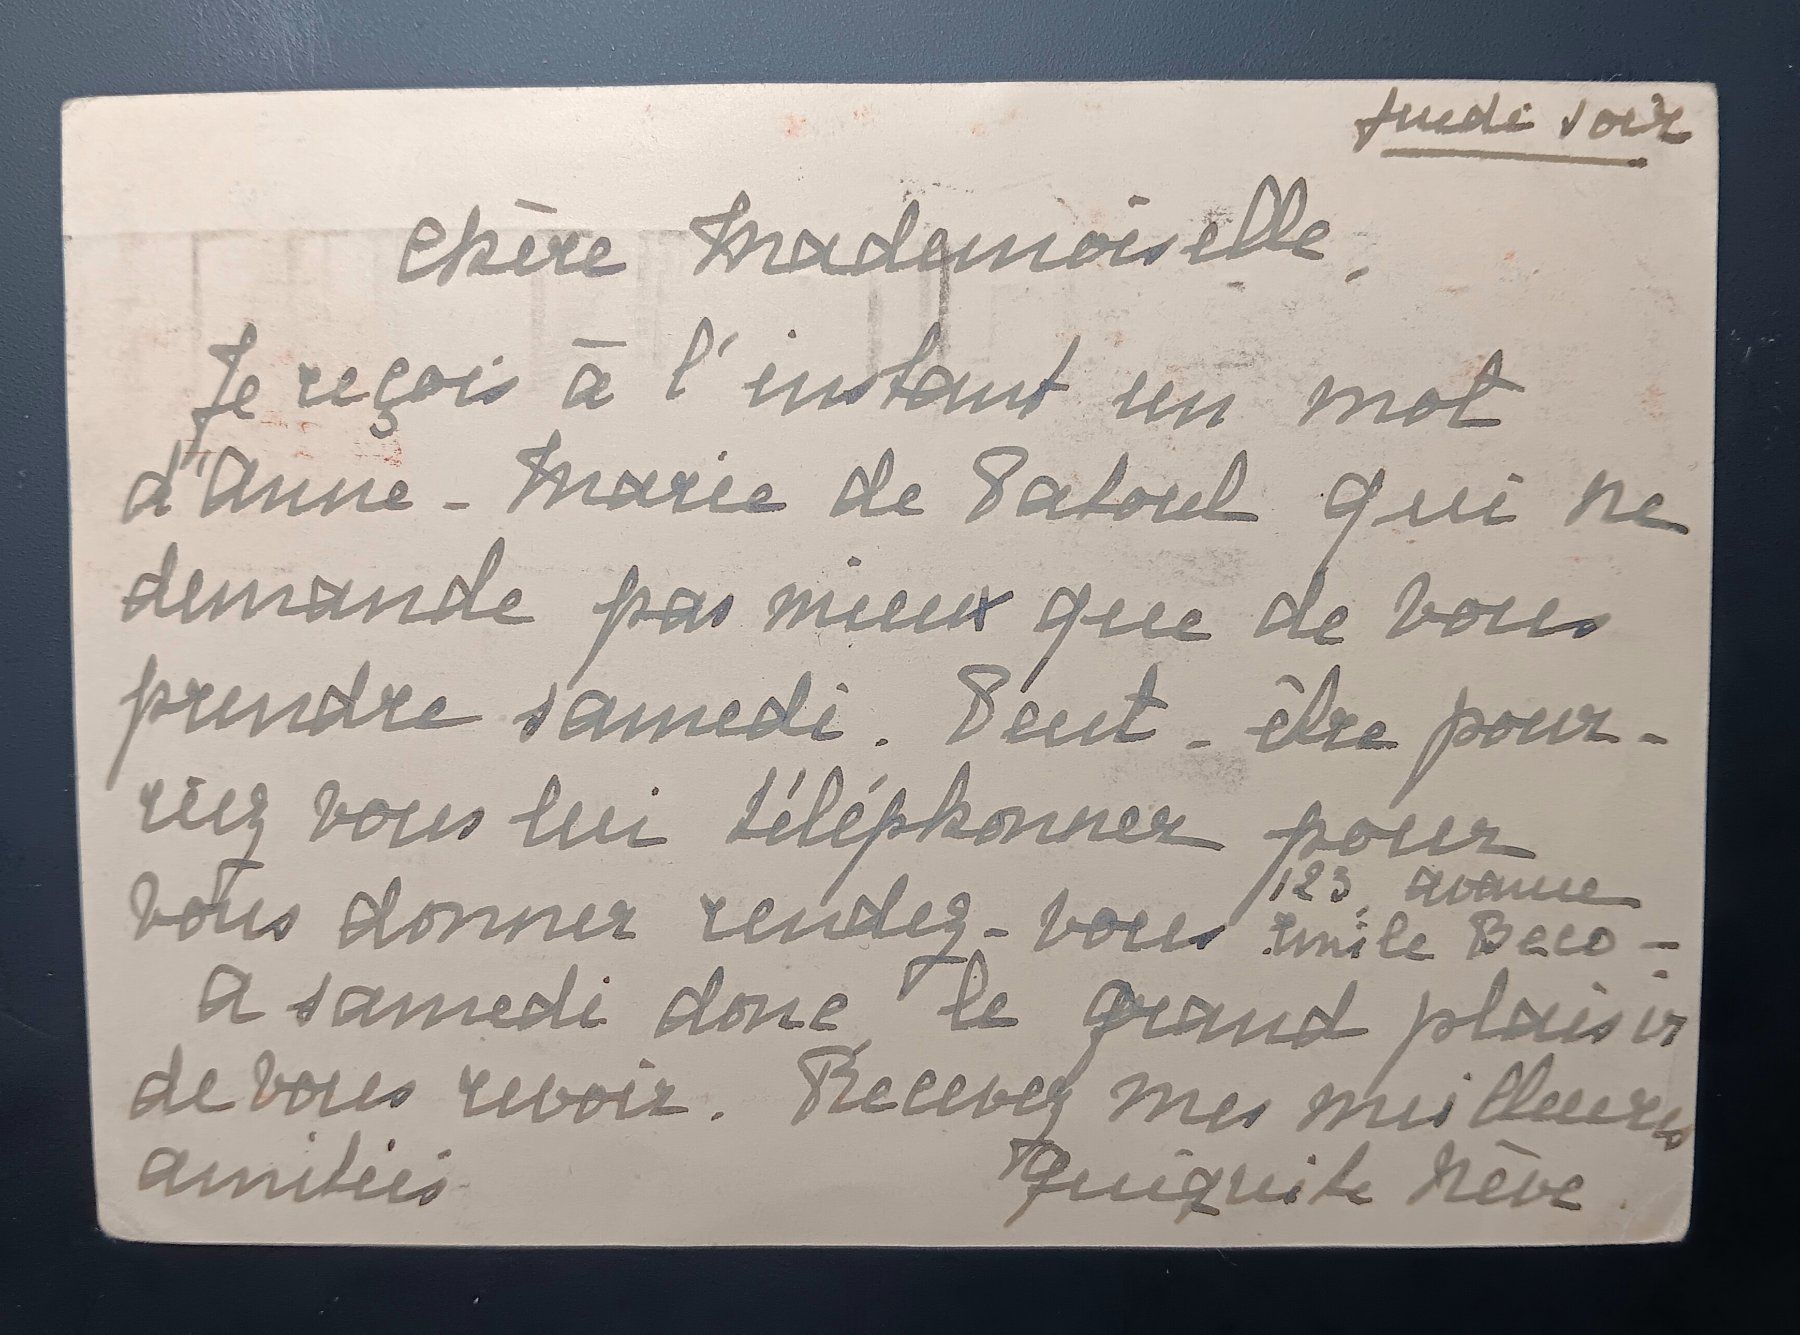 Jeudi soir
Chère Mademoiselle,
Je reçois à l'instant un mot
d'Anne-Marie de Patoul qui ne
demande pas mieux que de vous
prendre samedi. Peut-être pour-
riez vous lui téléphonner pour
vous donner rendez-vous 123, avenue
Emile Beco -
A samedi donc le grand plaisir
de vous revoir. Recevez mes meilleures
amitiés
Guiguite Nève